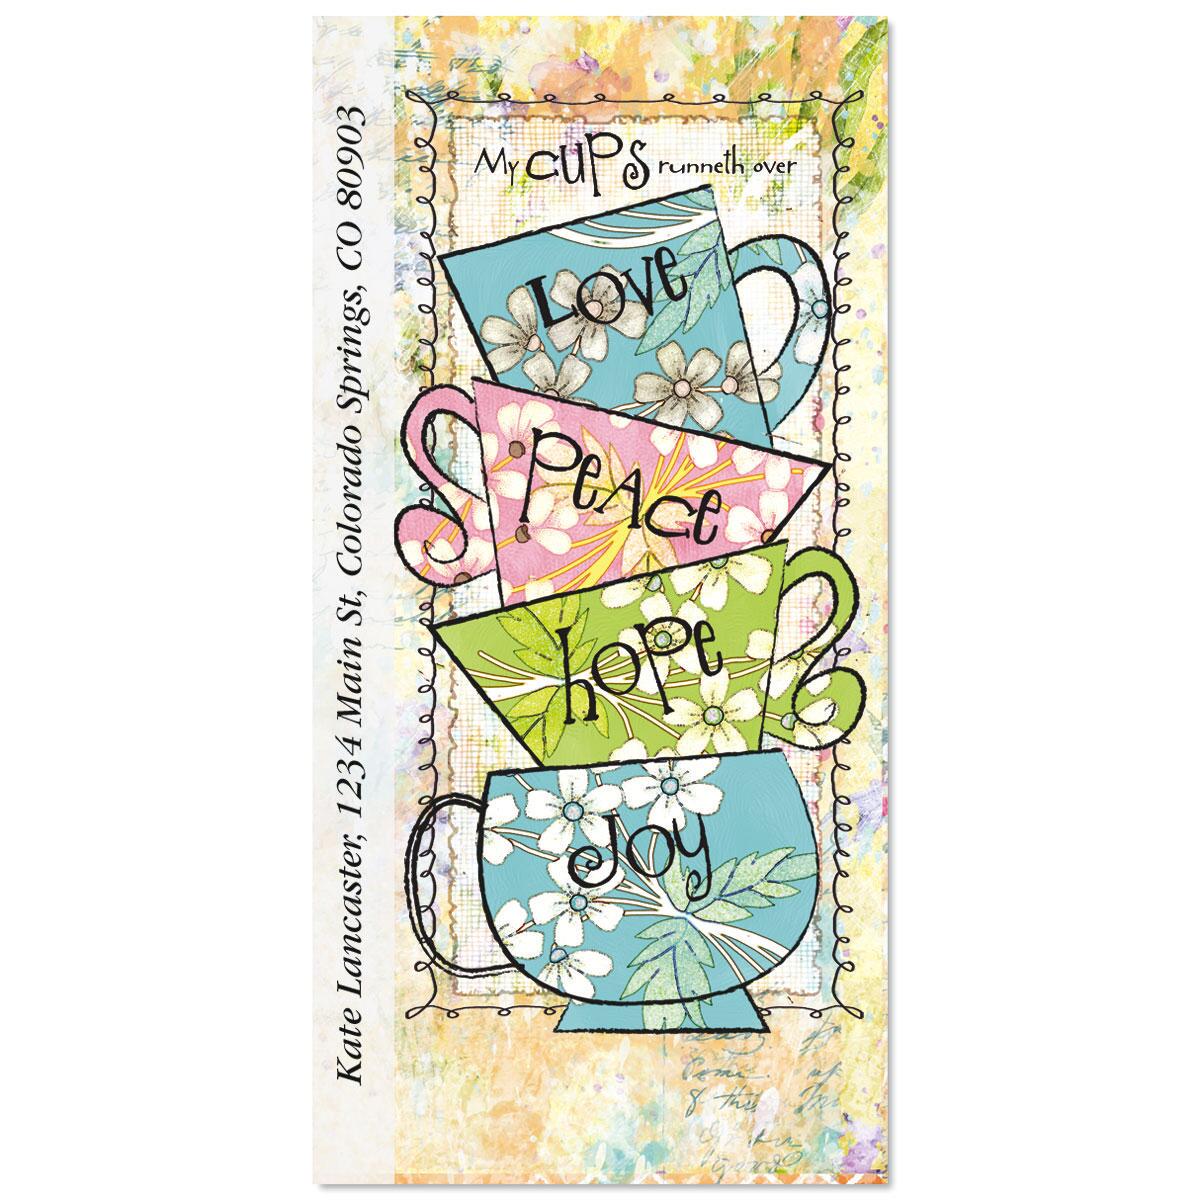 Kate Lancaster, 1234 Main St, Colorado Springs, CO 80903
My CUPS runneth over
LOVE
PeAce
hoPe
JOY